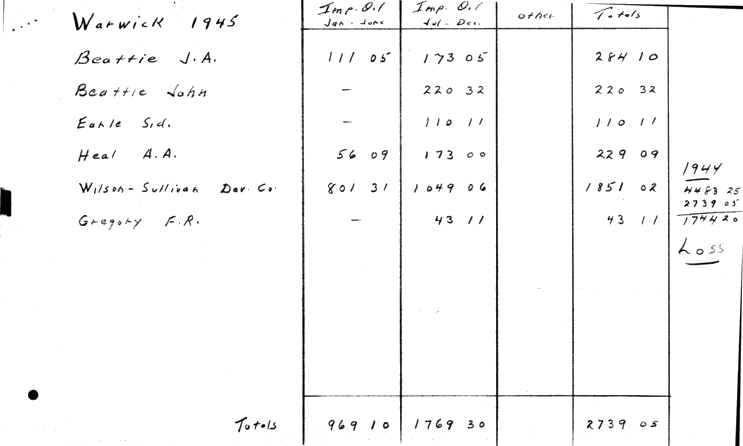 Warwick 1945 Imp. Oil Jan - June Imp. Oil Jul - Dec. Other Totals
Beattie J.A. 111 05 173 05 284 10
Beattie John - 220 32 220 32
Earle Sid. - 110 11 110 11
Heal A.A. 56 09 173 00 229 09
Wilson - Sullivan Dev. Co. 801 31 1049 06 1851 02
Gregory F.R. - 43 11 43 11
1944
4483 25
2739 05
1744 20
Loss
Totals 969 10 1769 30 2739 05